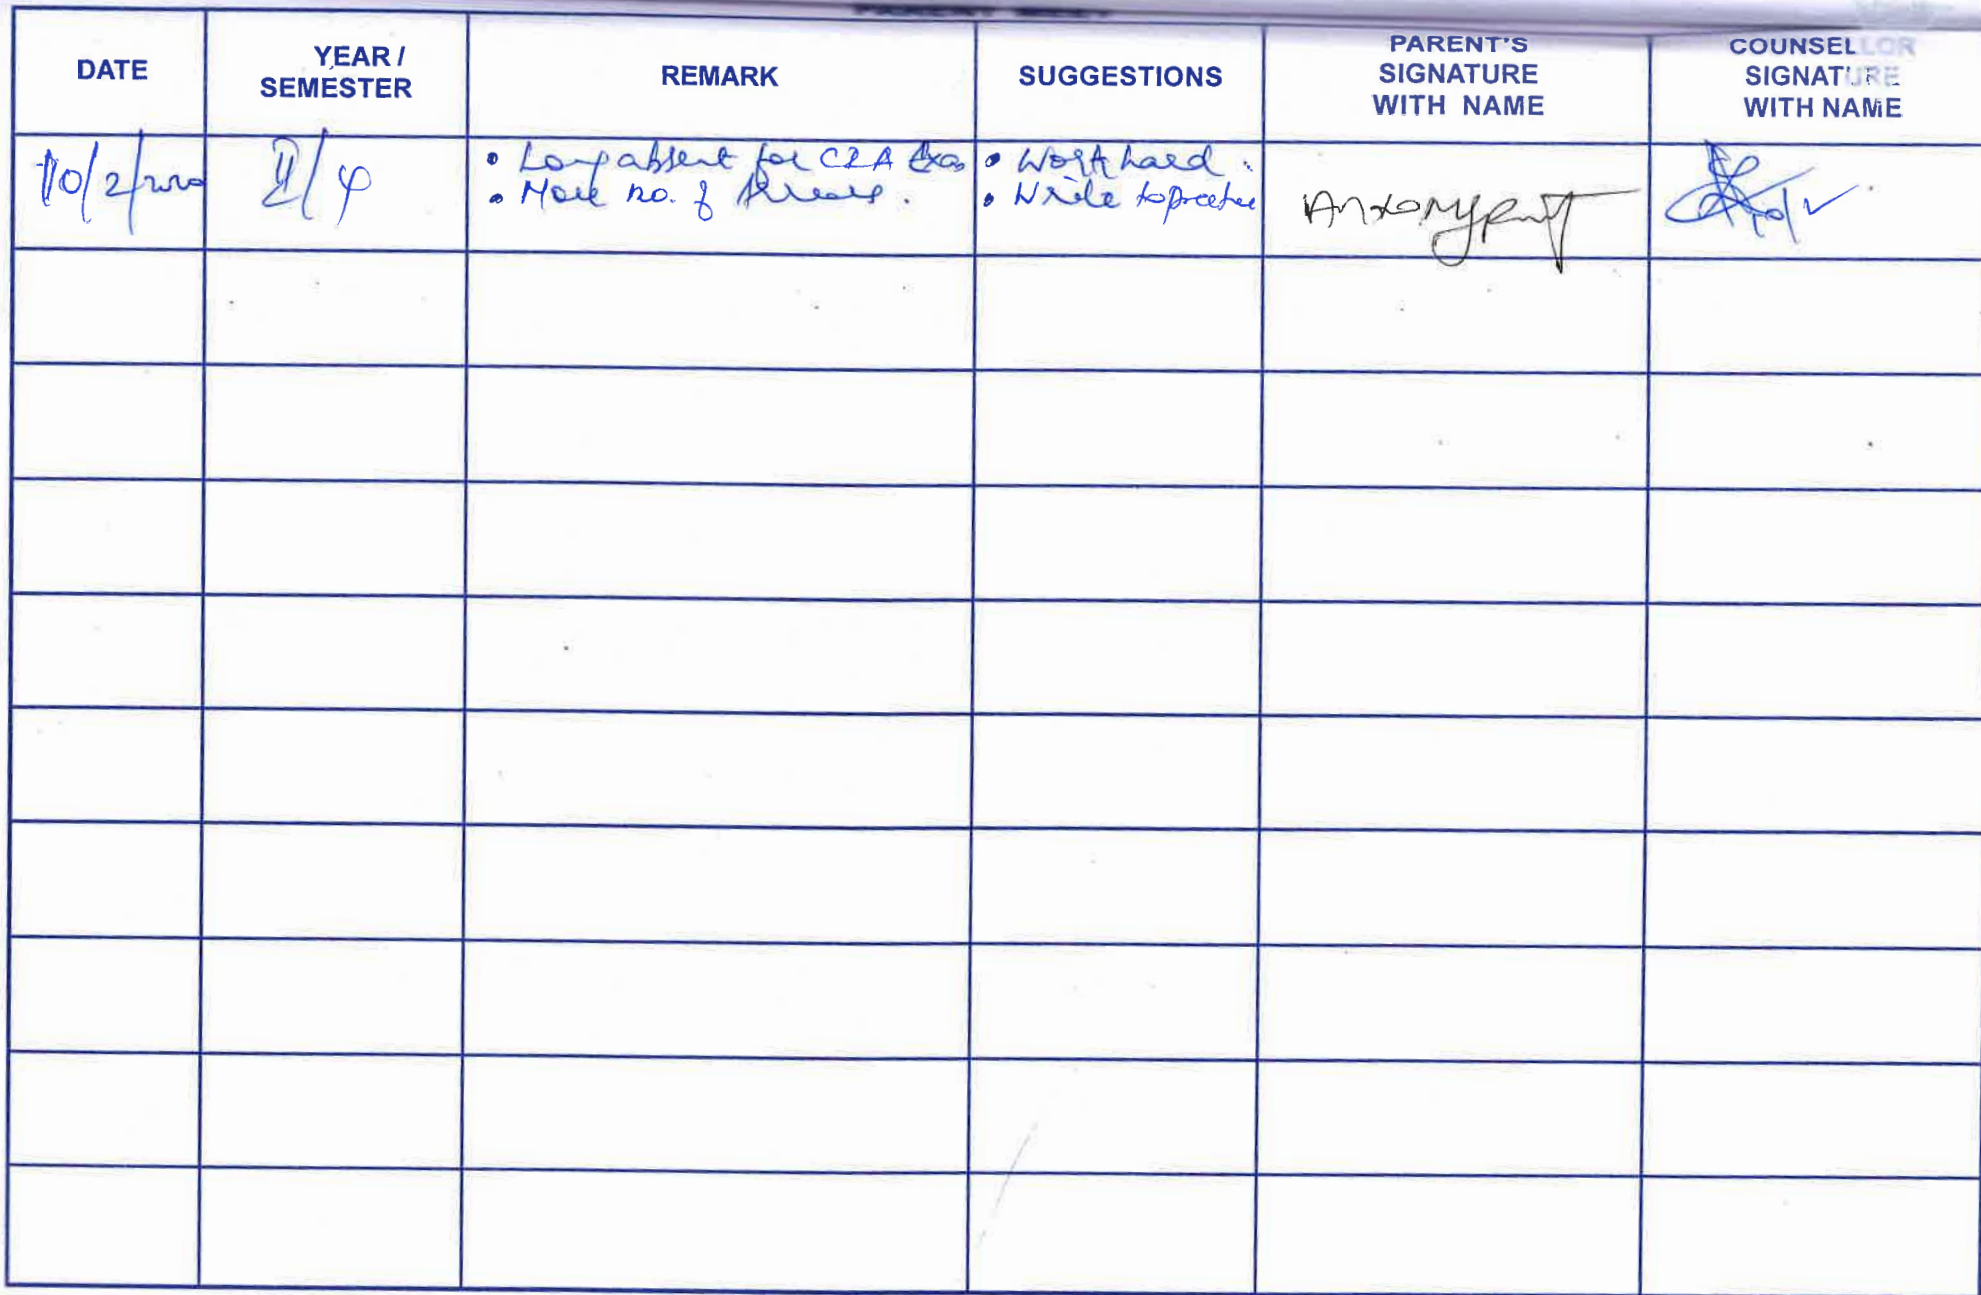 DATE
YEAR /
SEMESTER
REMARK
SUGGESTIONS
PARENT'S
SIGNATURE
WITH NAME
COUNSELLOR
SIGNATURE
WITH NAME
10/2/2020
II/4
• Long absent for CIA Exa
• More no. of Arrears.
• Work hard.
• Write to practice